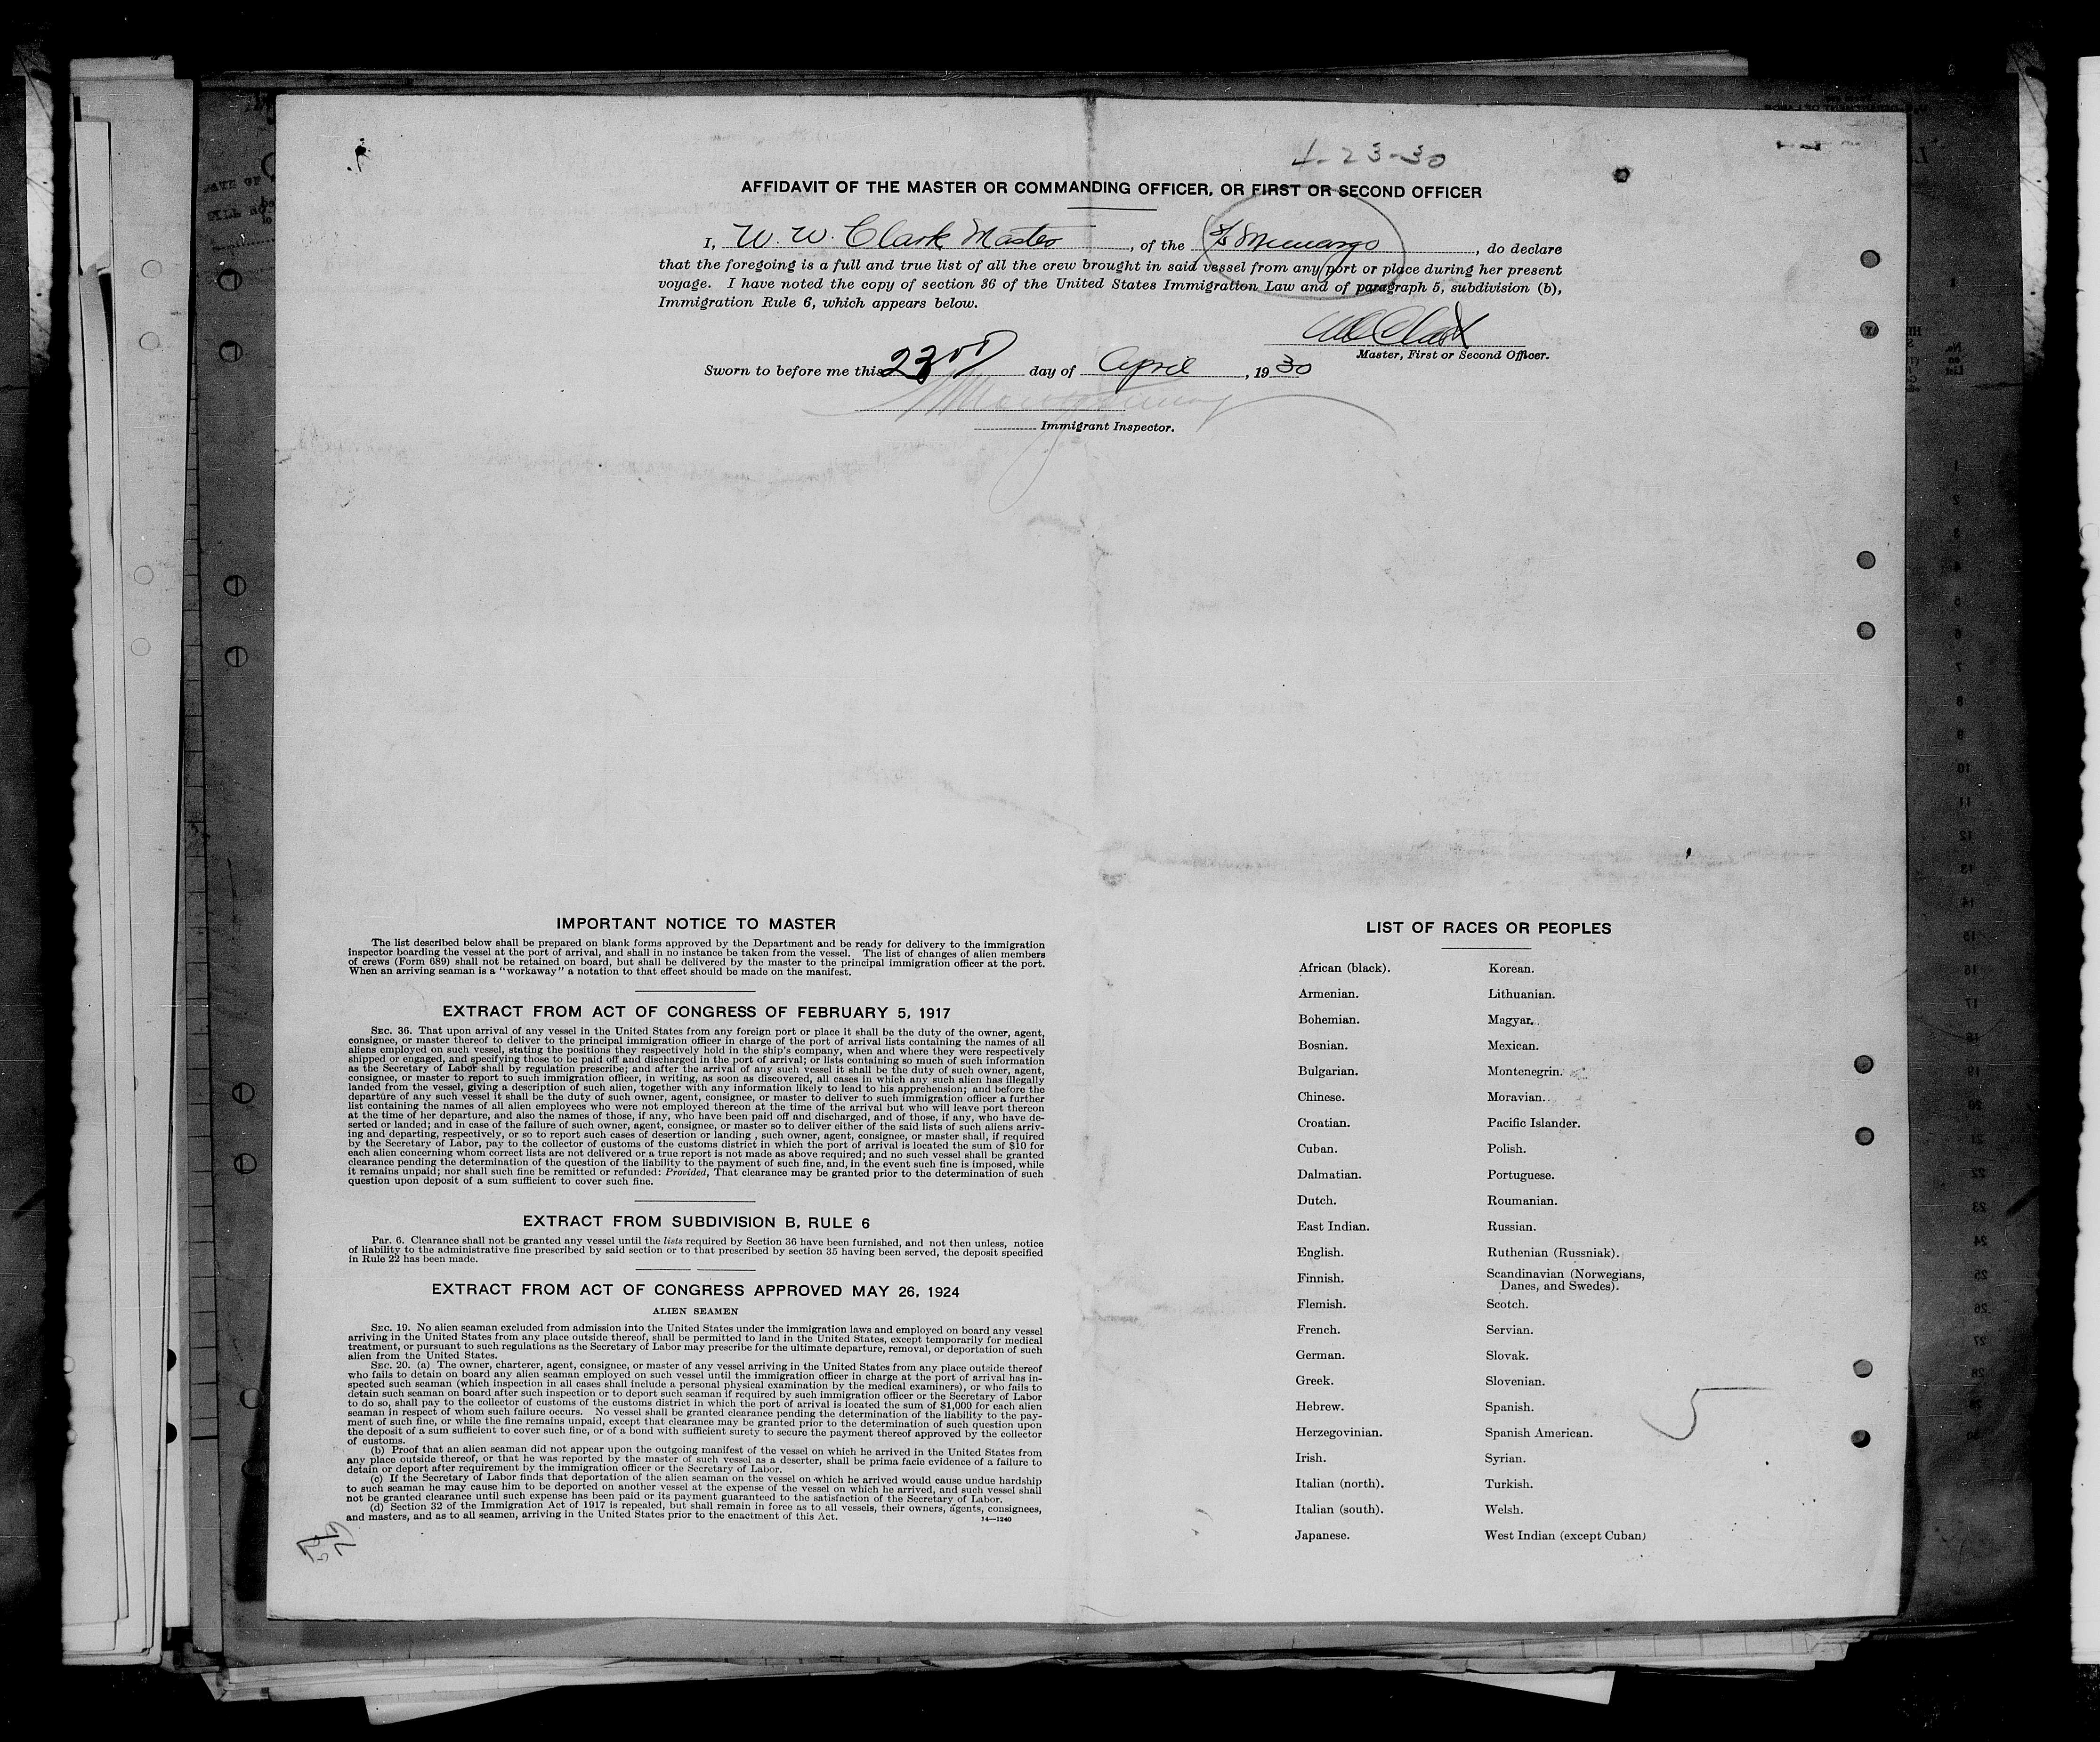 4-23-30
AFFIDAVIT OF THE MASTER OR COMMANDING OFFICER, OR FIRST OR SECOND OFFICER
I, W. W. Clark Master, of the S/S Munargo, do declare
that the foregoing is a full and true list of all the crew brought in said vessel from any port or place during her present
voyage. I have noted the copy of section 36 of the United States Immigration Law and of paragraph 5, subdivision (b),
Immigration Rule 6, which appears below.
Master, First or Second Officer.
Sworn to before me this 23rd day of April, 1930
Immigrant Inspector.
IMPORTANT NOTICE TO MASTER
The list described below shall be prepared on blank forms approved by the Department and be ready for delivery to the immigration
inspector boarding the vessel at the port of arrival, and shall in no instance be taken from the vessel. The list of changes of alien members
of crews (Form 689) shall not be retained on board, but shall be delivered by the master to the principal immigration officer at the port.
When an arriving seaman is a "workaway" a notation to that effect should be made on the manifest.
EXTRACT FROM ACT OF CONGRESS OF FEBRUARY 5, 1917
SEC. 36. That upon arrival of any vessel in the United States from any foreign port or place it shall be the duty of the owner, agent,
consignee, or master thereof to deliver to the principal immigration officer in charge of the port of arrival lists containing the names of all
aliens employed on such vessel, stating the positions they respectively hold in the ship's company, when and where they were respectively
shipped or engaged, and specifying those to be paid off and discharged in the port of arrival; or lists containing so much of such information
as the Secretary of Labor shall by regulation prescribe; and after the arrival of any such vessel it shall be the duty of such owner, agent,
consignee, or master to report to such immigration officer, in writing, as soon as discovered, all cases in which any such alien has illegally
landed from the vessel, giving a description of such alien, together with any information likely to lead to his apprehension; and before the
departure of any such vessel it shall be the duty of such owner, agent, consignee, or master to deliver to such immigration officer a further
list containing the names of all alien employees who were not employed thereon at the time of the arrival but who will leave port thereon
at the time of her departure, and also the names of those, if any, who have been paid off and discharged, and of those, if any, who have de-
serted or landed; and in case of the failure of such owner, agent, consignee, or master so to deliver either of the said lists of such aliens arriv-
ing and departing, respectively, or so to report such cases of desertion or landing, such owner, agent, consignee, or master shall, if required
by the Secretary of Labor, pay to the collector of customs of the customs district in which the port of arrival is located the sum of $10 for
each alien concerning whom correct lists are not delivered or a true report is not made as above required; and no such vessel shall be granted
clearance pending the determination of the question of the liability to the payment of such fine, and, in the event such fine is imposed, while
it remains unpaid; nor shall such fine be remitted or refunded: Provided, That clearance may be granted prior to the determination of such
question upon deposit of a sum sufficient to cover such fine.
EXTRACT FROM SUBDIVISION B, RULE 6
Par. 6. Clearance shall not be granted any vessel until the lists required by Section 36 have been furnished, and not then unless, notice
of liability to the administrative fine prescribed by said section or to that prescribed by section 35 having been served, the deposit specified
in Rule 22 has been made.
EXTRACT FROM ACT OF CONGRESS APPROVED MAY 26, 1924
ALIEN SEAMEN
SEC. 19. No alien seaman excluded from admission into the United States under the immigration laws and employed on board any vessel
arriving in the United States from any place outside thereof, shall be permitted to land in the United States, except temporarily for medical
treatment, or pursuant to such regulations as the Secretary of Labor may prescribe for the ultimate departure, removal, or deportation of such
alien from the United States.
SEC. 20. (a) The owner, charterer, agent, consignee, or master of any vessel arriving in the United States from any place outside thereof
who fails to detain on board any alien seaman employed on such vessel until the immigration officer in charge at the port of arrival has in-
spected such seaman (which inspection in all cases shall include a personal physical examination by the medical examiners), or who fails to
detain such seaman on board after such inspection or to deport such seaman if required by such immigration officer or the Secretary of Labor
to do so, shall pay to the collector of customs of the customs district in which the port of arrival is located the sum of $1,000 for each alien
seaman in respect of whom such failure occurs. No vessel shall be granted clearance pending the determination of the liability to the pay-
ment of such fine, or while the fine remains unpaid, except that clearance may be granted prior to the determination of such question upon
the deposit of a sum sufficient to cover such fine, or of a bond with sufficient surety to secure the payment thereof approved by the collector
of customs.
(b) Proof that an alien seaman did not appear upon the outgoing manifest of the vessel on which he arrived in the United States from
any place outside thereof, or that he was reported by the master of such vessel as a deserter, shall be prima facie evidence of a failure to
detain or deport after requirement by the immigration officer or the Secretary of Labor.
(c) If the Secretary of Labor finds that deportation of the alien seaman on the vessel on which he arrived would cause undue hardship
to such seaman he may cause him to be deported on another vessel at the expense of the vessel on which he arrived, and such vessel shall
not be granted clearance until such expense has been paid or its payment guaranteed to the satisfaction of the Secretary of Labor.
(d) Section 32 of the Immigration Act of 1917 is repealed, but shall remain in force as to all vessels, their owners, agents, consignees,
and masters, and as to all seamen, arriving in the United States prior to the enactment of this Act.
14—1240
LIST OF RACES OR PEOPLES
African (black). Korean.
Armenian. Lithuanian.
Bohemian. Magyar.
Bosnian. Mexican.
Bulgarian. Montenegrin.
Chinese. Moravian.
Croatian. Pacific Islander.
Cuban. Polish.
Dalmatian. Portuguese.
Dutch. Roumanian.
East Indian. Russian.
English. Ruthenian (Russniak).
Finnish. Scandinavian (Norwegians,
Danes, and Swedes).
Flemish. Scotch.
French. Servian.
German. Slovak.
Greek. Slovenian.
Hebrew. Spanish.
Herzegovinian. Spanish American.
Irish. Syrian.
Italian (north). Turkish.
Italian (south). Welsh.
Japanese. West Indian (except Cuban)
5